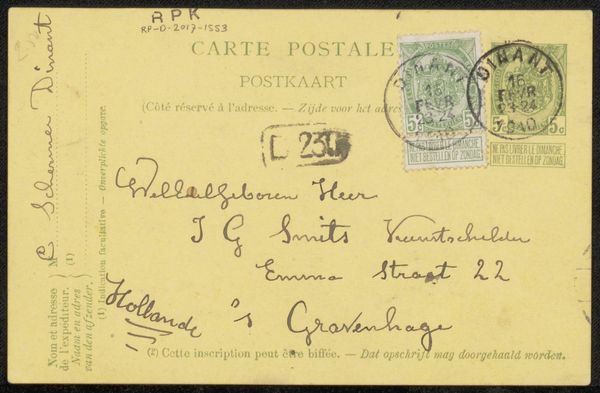 RPK
RP-D-2017-1553
CARTE POSTALE
POSTKAART
(Côté réservé à l'adresse. — Zijde voor het adres
5c 5c
NE PAS LIVRER LE DIMANCHE
NIET BESTELLEN OP ZONDAG
DINANT
16
FEVR
23-24
DINANT
16
FEVR
23-24
1910
5c 5c
NE PAS LIVRER LE DIMANCHE
NIET BESTELLEN OP ZONDAG
D 23
Welledelgeboren Heer
J G Smits Kunstschilder
Emma Straat 22
's Gravenhage
Hollande
(2) Cette inscription peut être biffée. — Dat opschrift mag doorgehaald worden.
C Schermer Dinant
M (1)
Nom et adresse
de l'expéditeur.
Naam en adres
van den afzender.
(1) Indication facultative — Onverplichte opgave.